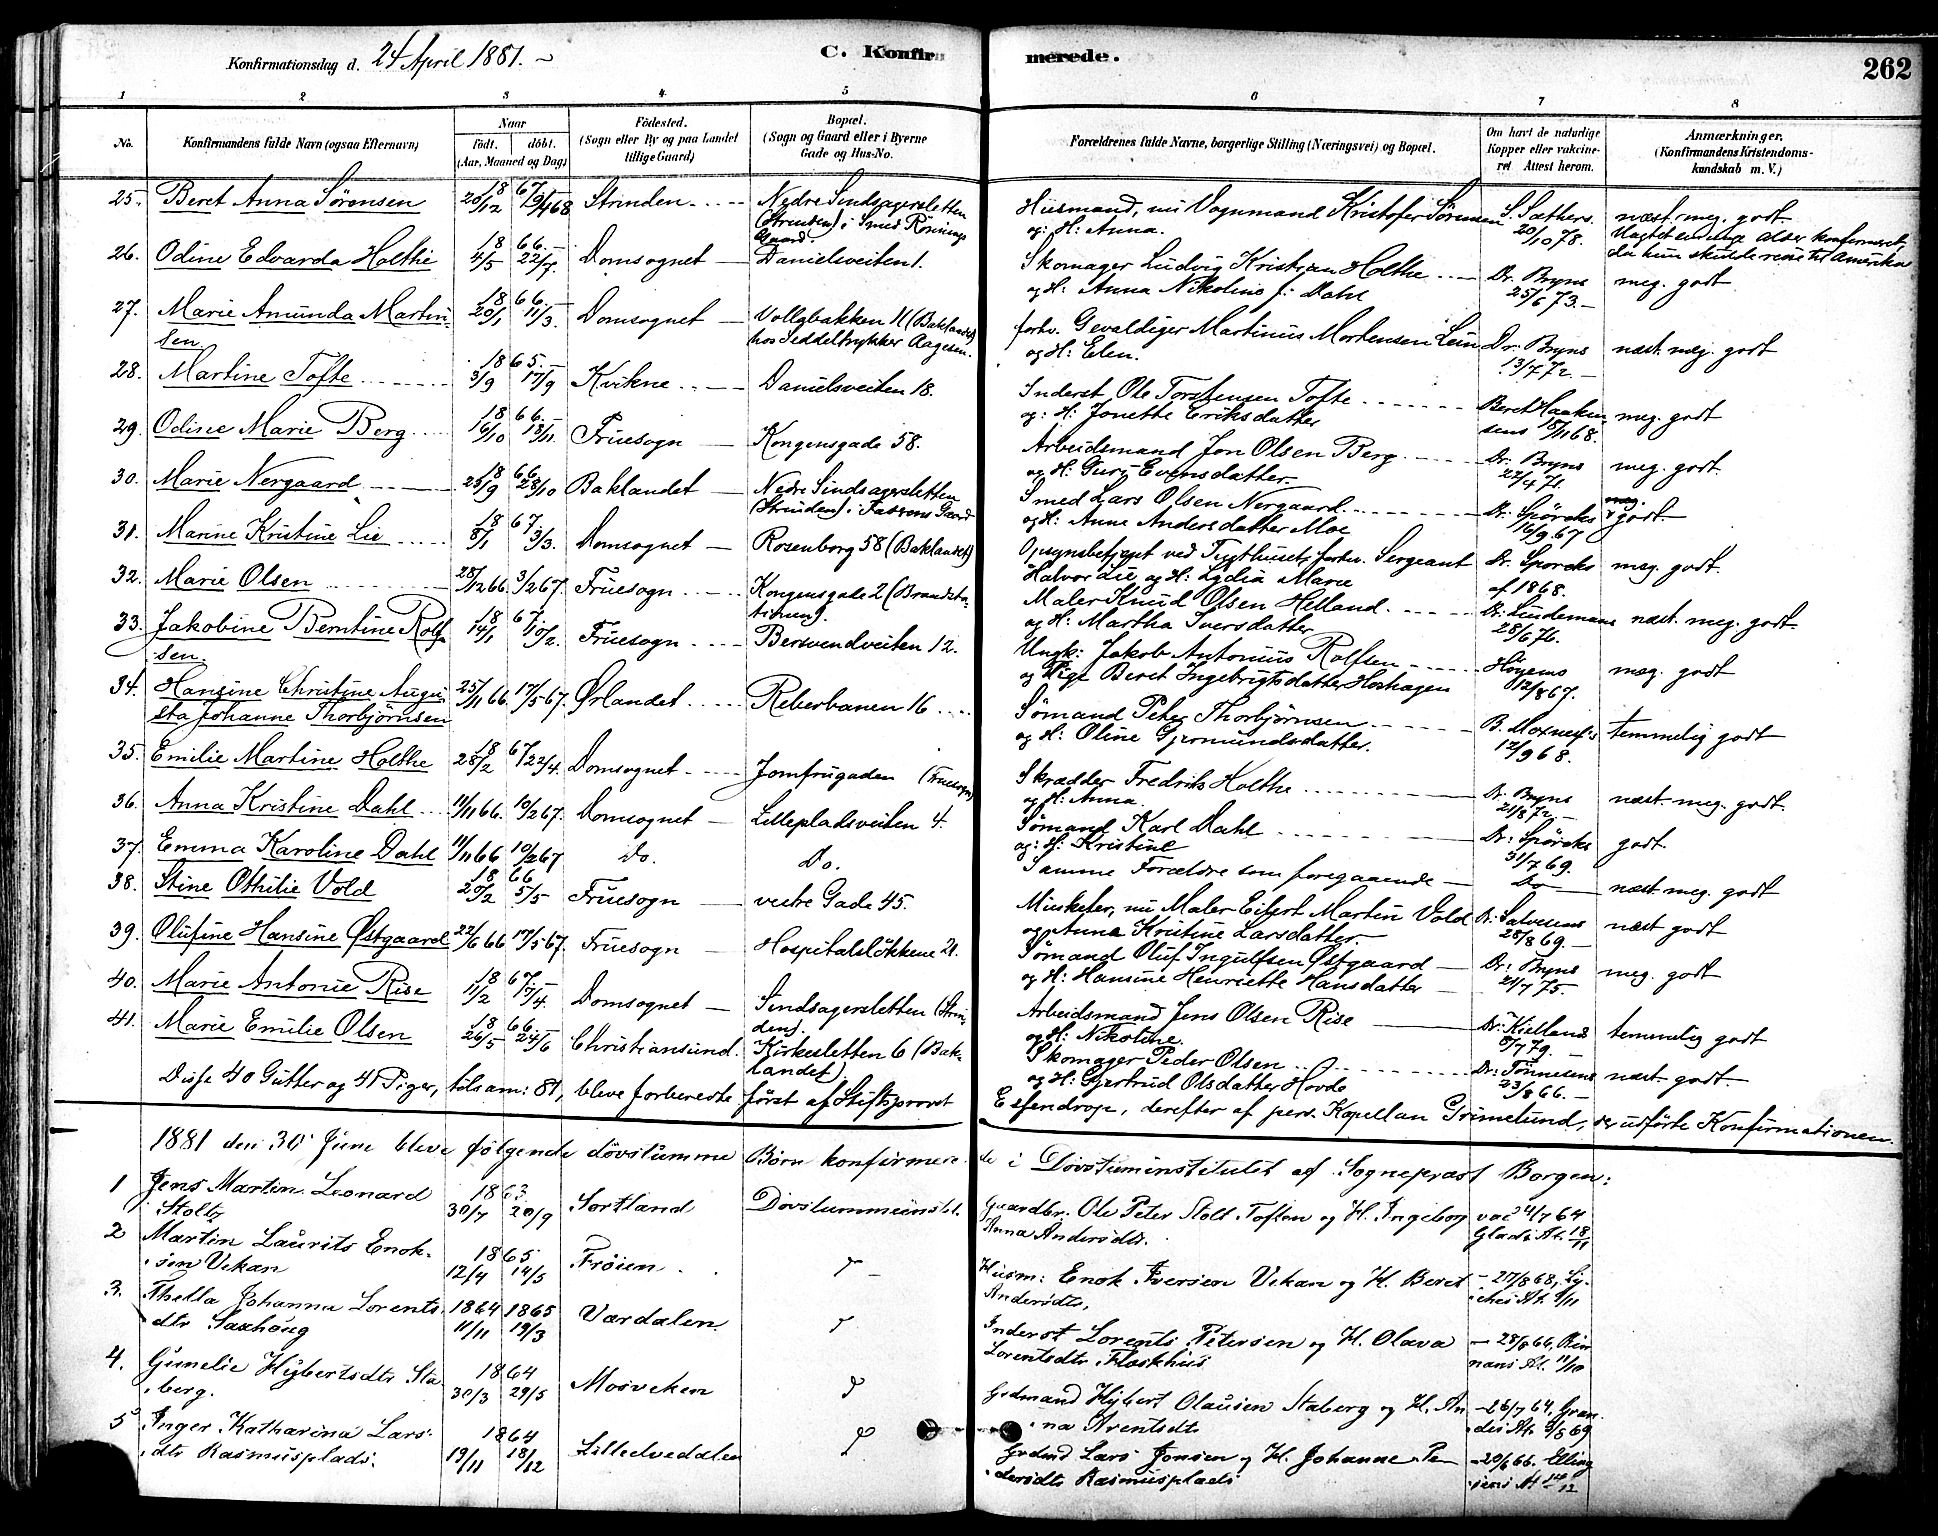 Konfirmationsdag d. 24 April 1881. C. Konfirmerede. 262
1 2 3 4 5 6 7 8
No. Konfirmandens fulde Navn (ogsaa Efternavn) Naar födt. döbt. (Aar, Maaned og Dag) Födested. (Sogn eller By og paa Landet tillige Gaard) Bopæl. (Sogn og Gaard eller i Byerne Gade og Hus-No. Forældrenes fulde Navne, borgerlige Stilling (Næringsvei) og Bopæl. Om havt de naturlige Kopper eller vaccineret Attest herom. Anmærkninger. (Konfirmandens Kristendomskundskab m. V.)
25. Beret Anna Sörensen 20/12 1867 13/4 68 Strinden Nedre Sindsagersletten (Strinden) i Smed Rönnings Gaard. Husmand, nu Vognmand Kristofer Sörensen og H: Anna. S. Sæthers 20/10 78. næst meg. godt.
da hun skulde reise til Amerika
26. Odine Edvarda Holthe 18 66 4/5 22/7 Domsognet Danielsveiten 1. Skomager Ludvig Kristian Holthe og H: Anna Nikoline f: Dahl Dr. Bryns 25/6 73. meg. godt
27. Marie Amunda Martinsen. 18 66 20/1 11/3. Domsognet Vollabakken 11 (Baklandet) hos Seddeltrykker Aagesen. forhv. Gevaldiger Martinus Mortensen Lein og H: Elen. Dr. Bryns 13/7 72. næst meg. godt
28. Martine Tofte 18 65. 3/9 17/9 Kvikne Danielsveiten 18. Inderst Ole Torstensen Tofte og H: Jonette Eriksdatter Beret Haakensens 15/11 68. meg. godt
29. Odine Marie Berg 18 66. 16/10 18/11. Fruesogn Kongensgade 58. Arbeidsmand Jon Olsen Berg og H: Guri Evensdatter. Dr. Bryns 22/4 71. meg. godt.
30. Marie Nergaard 18 66 25/9 28/10 Baklandet Nedre Sindsagersletten (Strinden) i Gaard Smed Lars Olsen Nergaard og H: Anne Andersdatter Moe Dr. Spörcks 16/9 67 meg. godt.
31. Marine Kristine Lie 18 67. 8/1 3/3. Domsognet Rosenborg 58 (Baklandet) Opsynsbetjent ved Tugthuset, forhv. Sergeant Halvor Lie og H: Lydia Marie Dr. Sporcks af 1868. meg. godt.
32. Marie Olsen 28/12 66. 3/2 67. Fruesogn Kongensgade 2 (Brandstationen). Maler Knud Olsen Helland og H: Martha Iversdatter Dr. Lindemans 28/6 76. næst meg. godt.
33. Jakobine Berntine Rolfsen. 18 67. 14/1 10/2. Fruesogn Bersvendveiten 12. Ungk: Jakob Antonius Rolfsen og Pige Beret Ingebrigtsdatter Hoshagen Höyems 12/8 67. meg. godt
34. Hansine Christine Augusta Johanne Thorbjörnsen 25/11 66 17/5 67. Ørlandet Reberbanen 16 Sömand Peter Thorbjörnsen og H: Oline Gjermundsdatter. B. Moxnes's 12/9 68. temmelig godt
35. Emilie Martine Holthe 18 67 28/2 22/4. Domsognet Jomfrugaden (Fruesogn) Skrædder Fredrik Holthe og H: Anna. Dr. Bryns 21/8 72. næst meg. godt.
36. Anna Kristine Dahl 11/11 66. 10/2 67. Domsognet Lillepladsveiten 4. Sömand Karl Dahl og: H: Kristine Dr: Spörcks 31/7 69. godt.
37. Emma Karoline Dahl 11/11 66 10/2 67 Do. Do. Samme Forældre som foregaaende Do næst meg. godt
38. Stine Othilie Vold 18 66 20/2 5/5 Fruesogn vestre Gade 45. Musketer, nu Maler Eifert Martin Vold og Anna Kristine Larsdatter. Dr: Salvesens 28/8 69. næst godt
39. Olufine Hansine Østgaard 22/6 66 17/5 67. Fruesogn Hospitalslökkene 21. Sömand Oluf Ingulfsen Østgaard og H: Hansine Henriette Hansdatter Dr: Bryns 21/7 75. meg. godt
40. Marie Antonie Rise 18 67. 11/2 17/4. Domsognet Sindsagersletten (Strinden). Arbeidsmand Jens Olsen Rise og H: Nikoline. Dr: Kiellands 8/7 79. temmelig godt
41. Marie Emilie Olsen 18 66. 26/5 24/6 Christiansund. Kirkesletten 6 (Baklandet). Skomager Peder Olsen og H: Gjertrud Olsdatter Hovde Dr: Tönnesens 23/8 66. næst godt.
Disse 40 Gutter og 41 Piger, tilsam: 81, bleve forberedte först af Stiftsprovst Essendrop, derefter af pers. Kapellan Grimelund, der udförte Konfirmationen.
1881 den 30 Juni bleve fölgende dövstumme Börn konfirmerede i Dövstuminstitutet af Sogneprest Borgen:
1 Jens Martin Leonard Stoltz 1863 30/7 20/9 Sortland Dövstummeinstit. Gaardbr. Ole Peter Stolt Toften og H. Ingeborg Anna Andersdtr. vac 4/7 64 Glads At. 18/11
2 Martin Laurits Enoksen Vekan 1865 12/4 14/5 Fröien Husm: Enok Iversen Vekan og H. Beret Andersdtr, 27/8 68,
3. Thella Johanna Lorentsdtr Saxhaug 1864 11/11 1865 19/3 Værdalen Inderst Lorents Petersen og H. Olava Lorentsdtr Floskhus 28/8 66, Rinnans At. 11/10
4. Gunelie Hybertsdtr Staberg. 1864 30/3 29/5 Mosviken Grdmand Hybert Olausen Staberg og H. Anna Arentsdtr 26/7 64, At. 9/8 69
5 Inger Katharina Larsdtr Rasmusplads. 1864 19/11 18/12 Lilleelvedalen Grdmd Lars Jonsen og H. Johanne Pedersdtr Rasmusplads 20/6 66. Ellingsens At 14/12